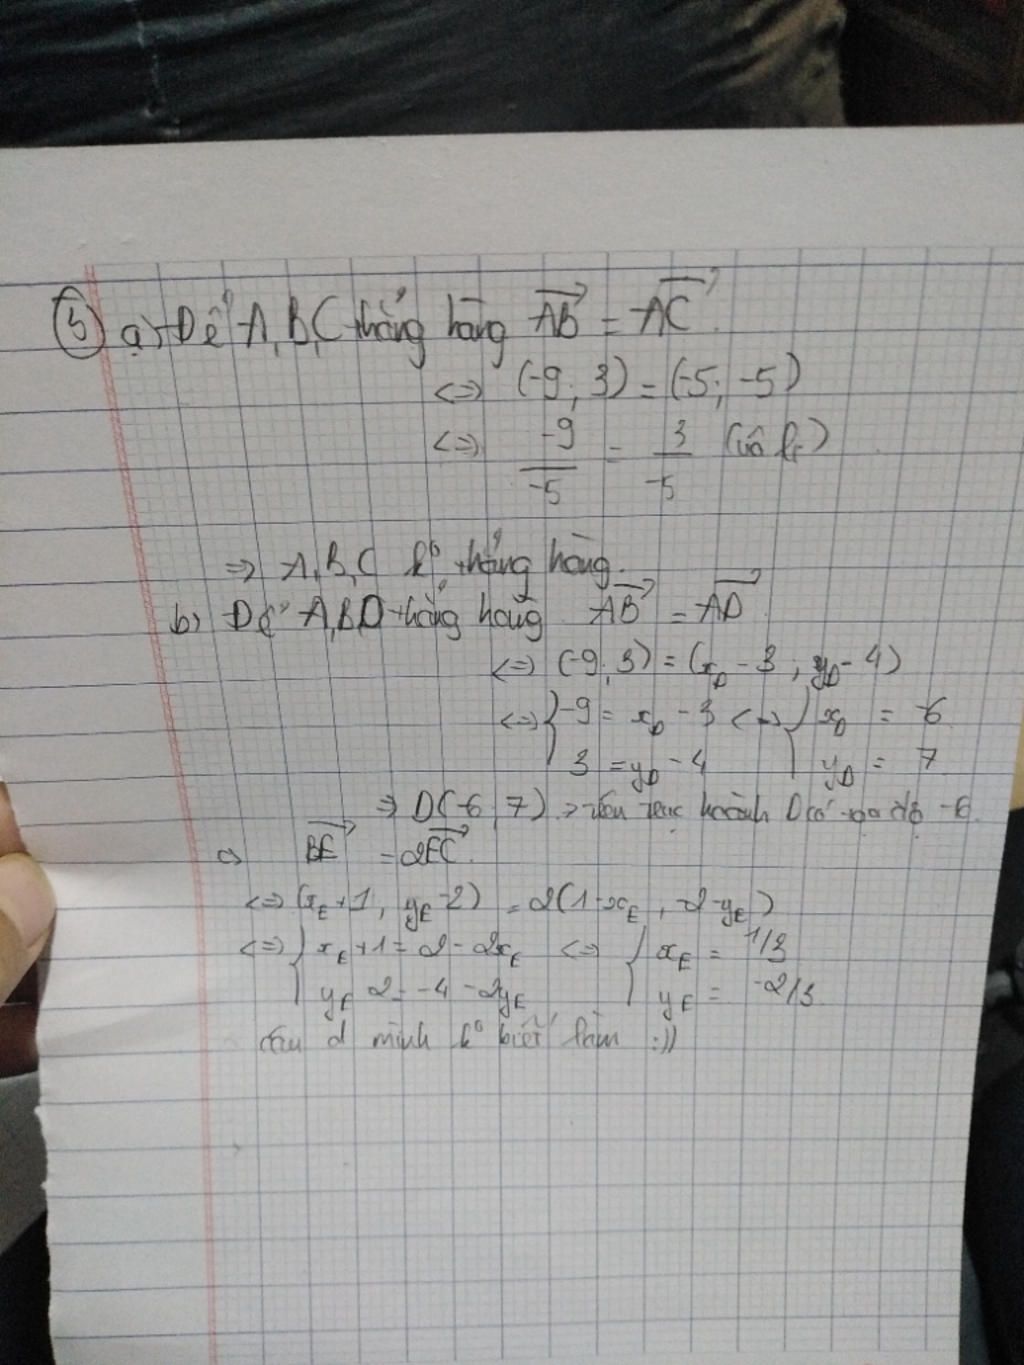 5) a) Để A, B, C thẳng hàng AB = AC.
<=> (-9; 3) = (-5; -5)
<=> -9/-5 = 3/-5 (vô lý)
=> A, B, C k° thẳng hàng.
b) Để A, B, D thẳng hàng AB = AD
<=> (-9; 3) = (xD - 3; yD - 4)
<=> { -9 = xD - 3 <=> { xD = -6
3 = yD - 4 yD = 7
=> D(-6; 7) => trên trục hoành D có tọa độ -6.
c) BE = 2EC.
<=> (xE + 1, yE - 2) = 2(1 - xE, -2 - yE)
<=> { xE + 1 = 2 - 2xE <=> { xE = 1/3
yE 2 = -4 - 2yE yE = -2/3
Câu d mình k° biết làm :))